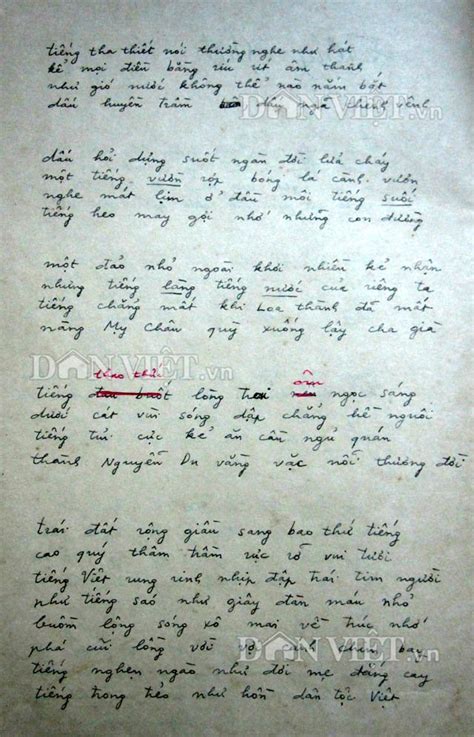 tiếng tha thiết nói thường nghe như hát
kể mọi điều bằng ríu rít âm thanh
như gió nước không thể nào nắm bắt
DÂN VIỆT.vn
dấu huyền trầm dấu ngã chênh vênh
dấu hỏi dựng suốt ngàn đời lửa cháy
một tiếng vườn rợp bóng lá cành vươn
nghe mát lịm ở đầu môi tiếng suối
tiếng heo may gợi nhớ những con đường
một đảo nhỏ ngoài khơi nhiều kẻ nhận
nhưng tiếng làng tiếng nước của riêng ta
tiếng chẳng mất khi Loa thành đã mất
nàng Mỵ Châu quỳ xuống lạy cha già
DÂN VIỆT.vn
thao thức ôm
tiếng đau buốt lòng trai ngọc sáng
dưới cát vùi sóng dập chẳng hề nguôi
tiếng tủi cực kẻ ăn cầu ngủ quán
thành Nguyễn Du vằng vặc nỗi thương đời
trái đất rộng giầu sang bao thứ tiếng
cao quý thâm trầm rực rỡ vui tươi
tiếng Việt rung rinh nhịp đập trái tim người
như tiếng sáo như giây đàn máu nhỏ
buồm lộng sóng xô mai về trúc nhớ
phá cũi lồng vời vợi cánh chim bay
DÂN VIỆT.vn
tiếng nghẹn ngào như đời mẹ đắng cay
tiếng trong trẻo như hồn dân tộc Việt